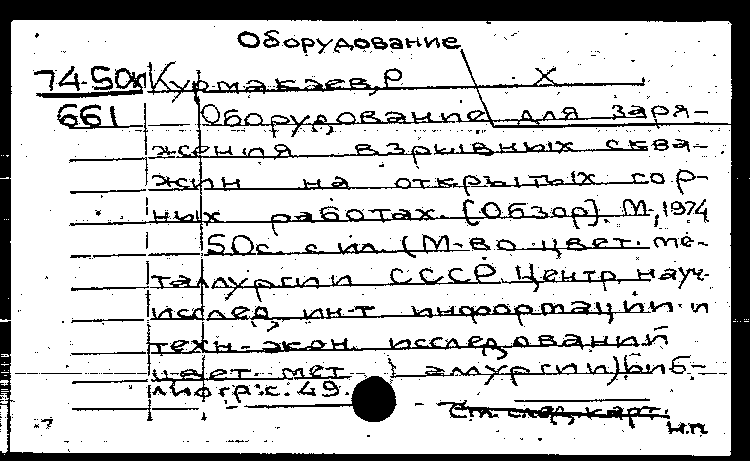 Оборудование
74-50к Курмакаев, Р Х
661 Оборудование для заря-
жения взрывных сква-
жин на открытых гор-
ных работах. [Обзор]. М., 1974
50с. с ил. (М-во цвет. ме-
таллургии СССР. Центр. науч.-
исслед. ин-т информации и
техн.-экон. исследований
цвет. мет аллургии) Биб-
лиогр: с. 49.
См. след. карт.
н.п